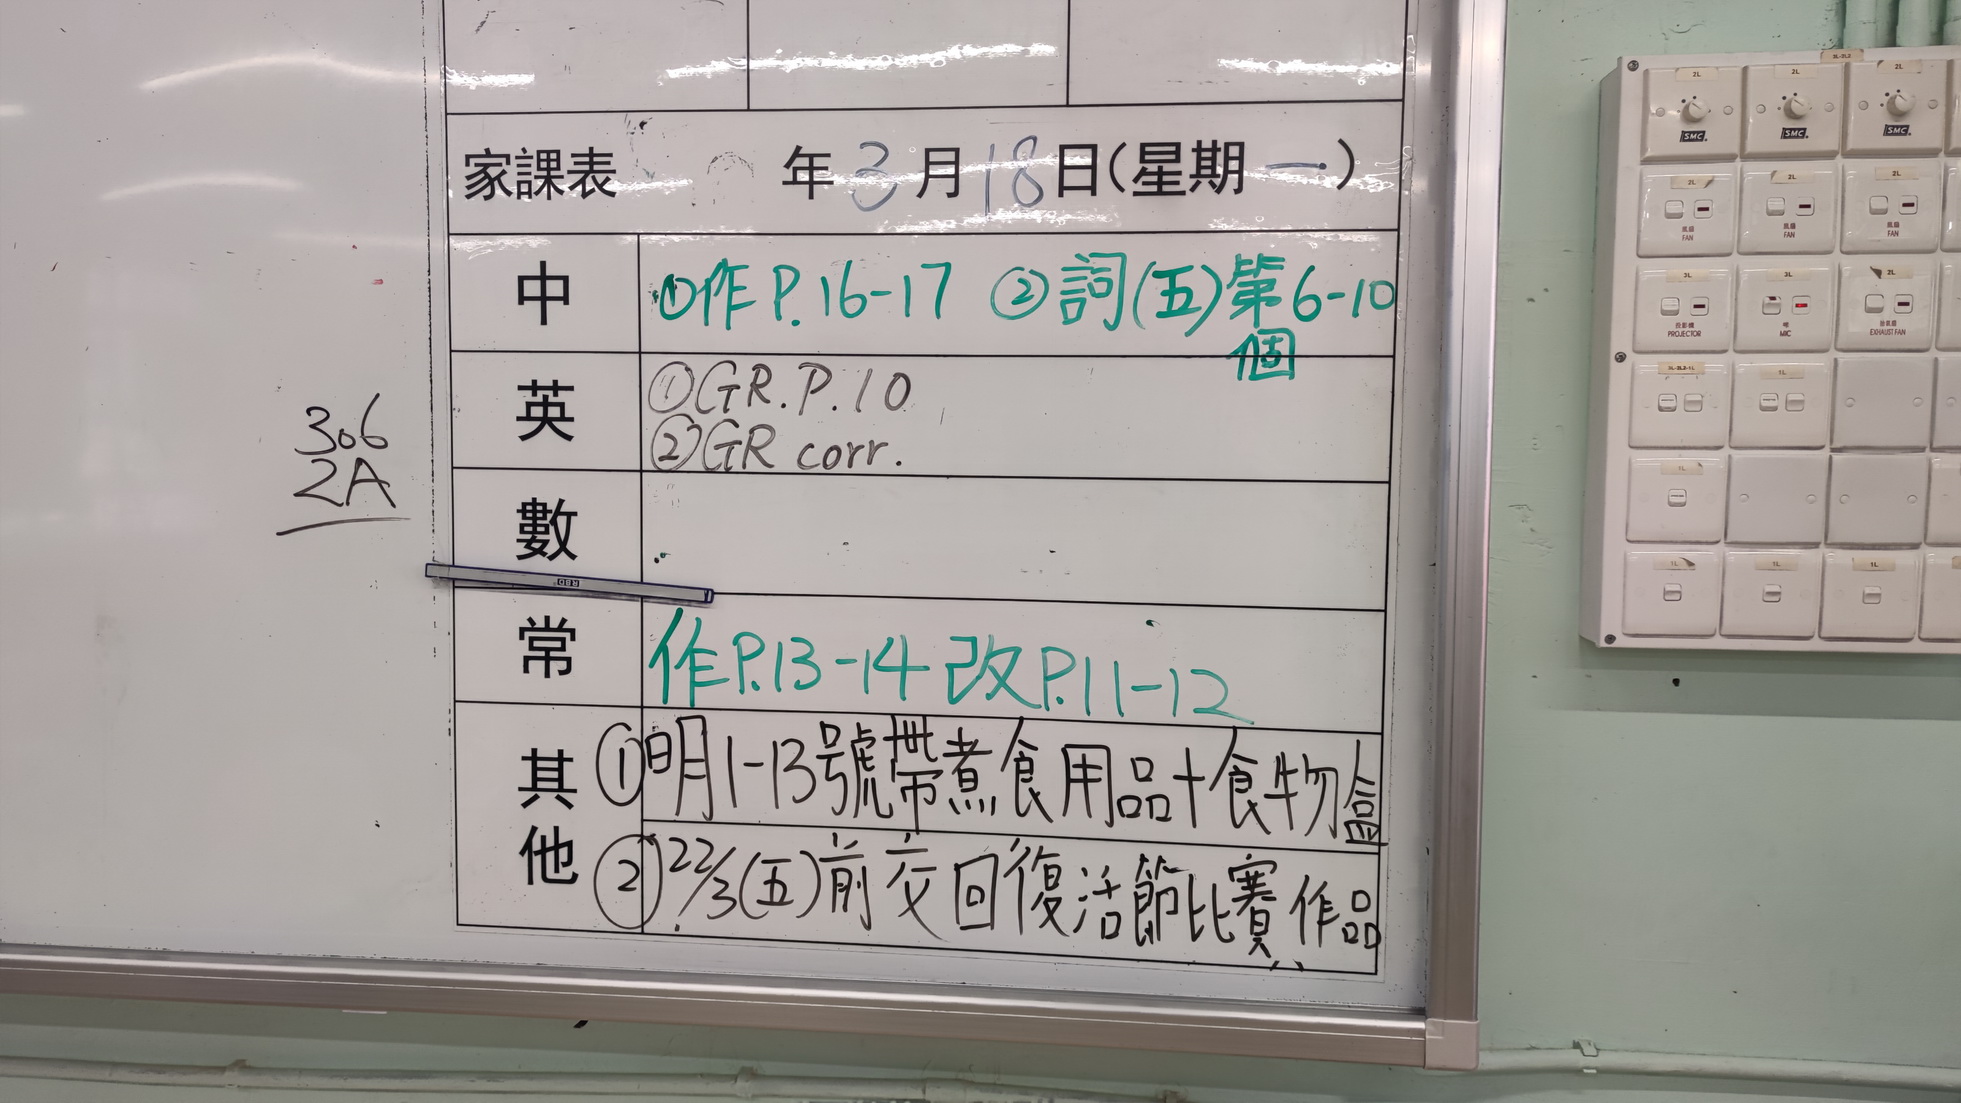 家課表 年3月18日(星期一)
中 ①作P.16-17 ②詞(五)第6-10
個
英 ①GR.P.10
②GR corr.
數
常 作P.13-14 改P.11-12
其他 ①明1-13號帶煮食用品+食物盒
②22/3(五)前交回復活節比賽作品
306
2A
RBD
3L-2L2
2L 2L 2L
SMC SMC SMC
2L 2L 2L
風扇 風扇 風扇
FAN FAN FAN
3L 3L 2L
投影機 咪 抽氣扇
PROJECTOR MIC EXHAUST FAN
1L
1L
1L 1L 1L